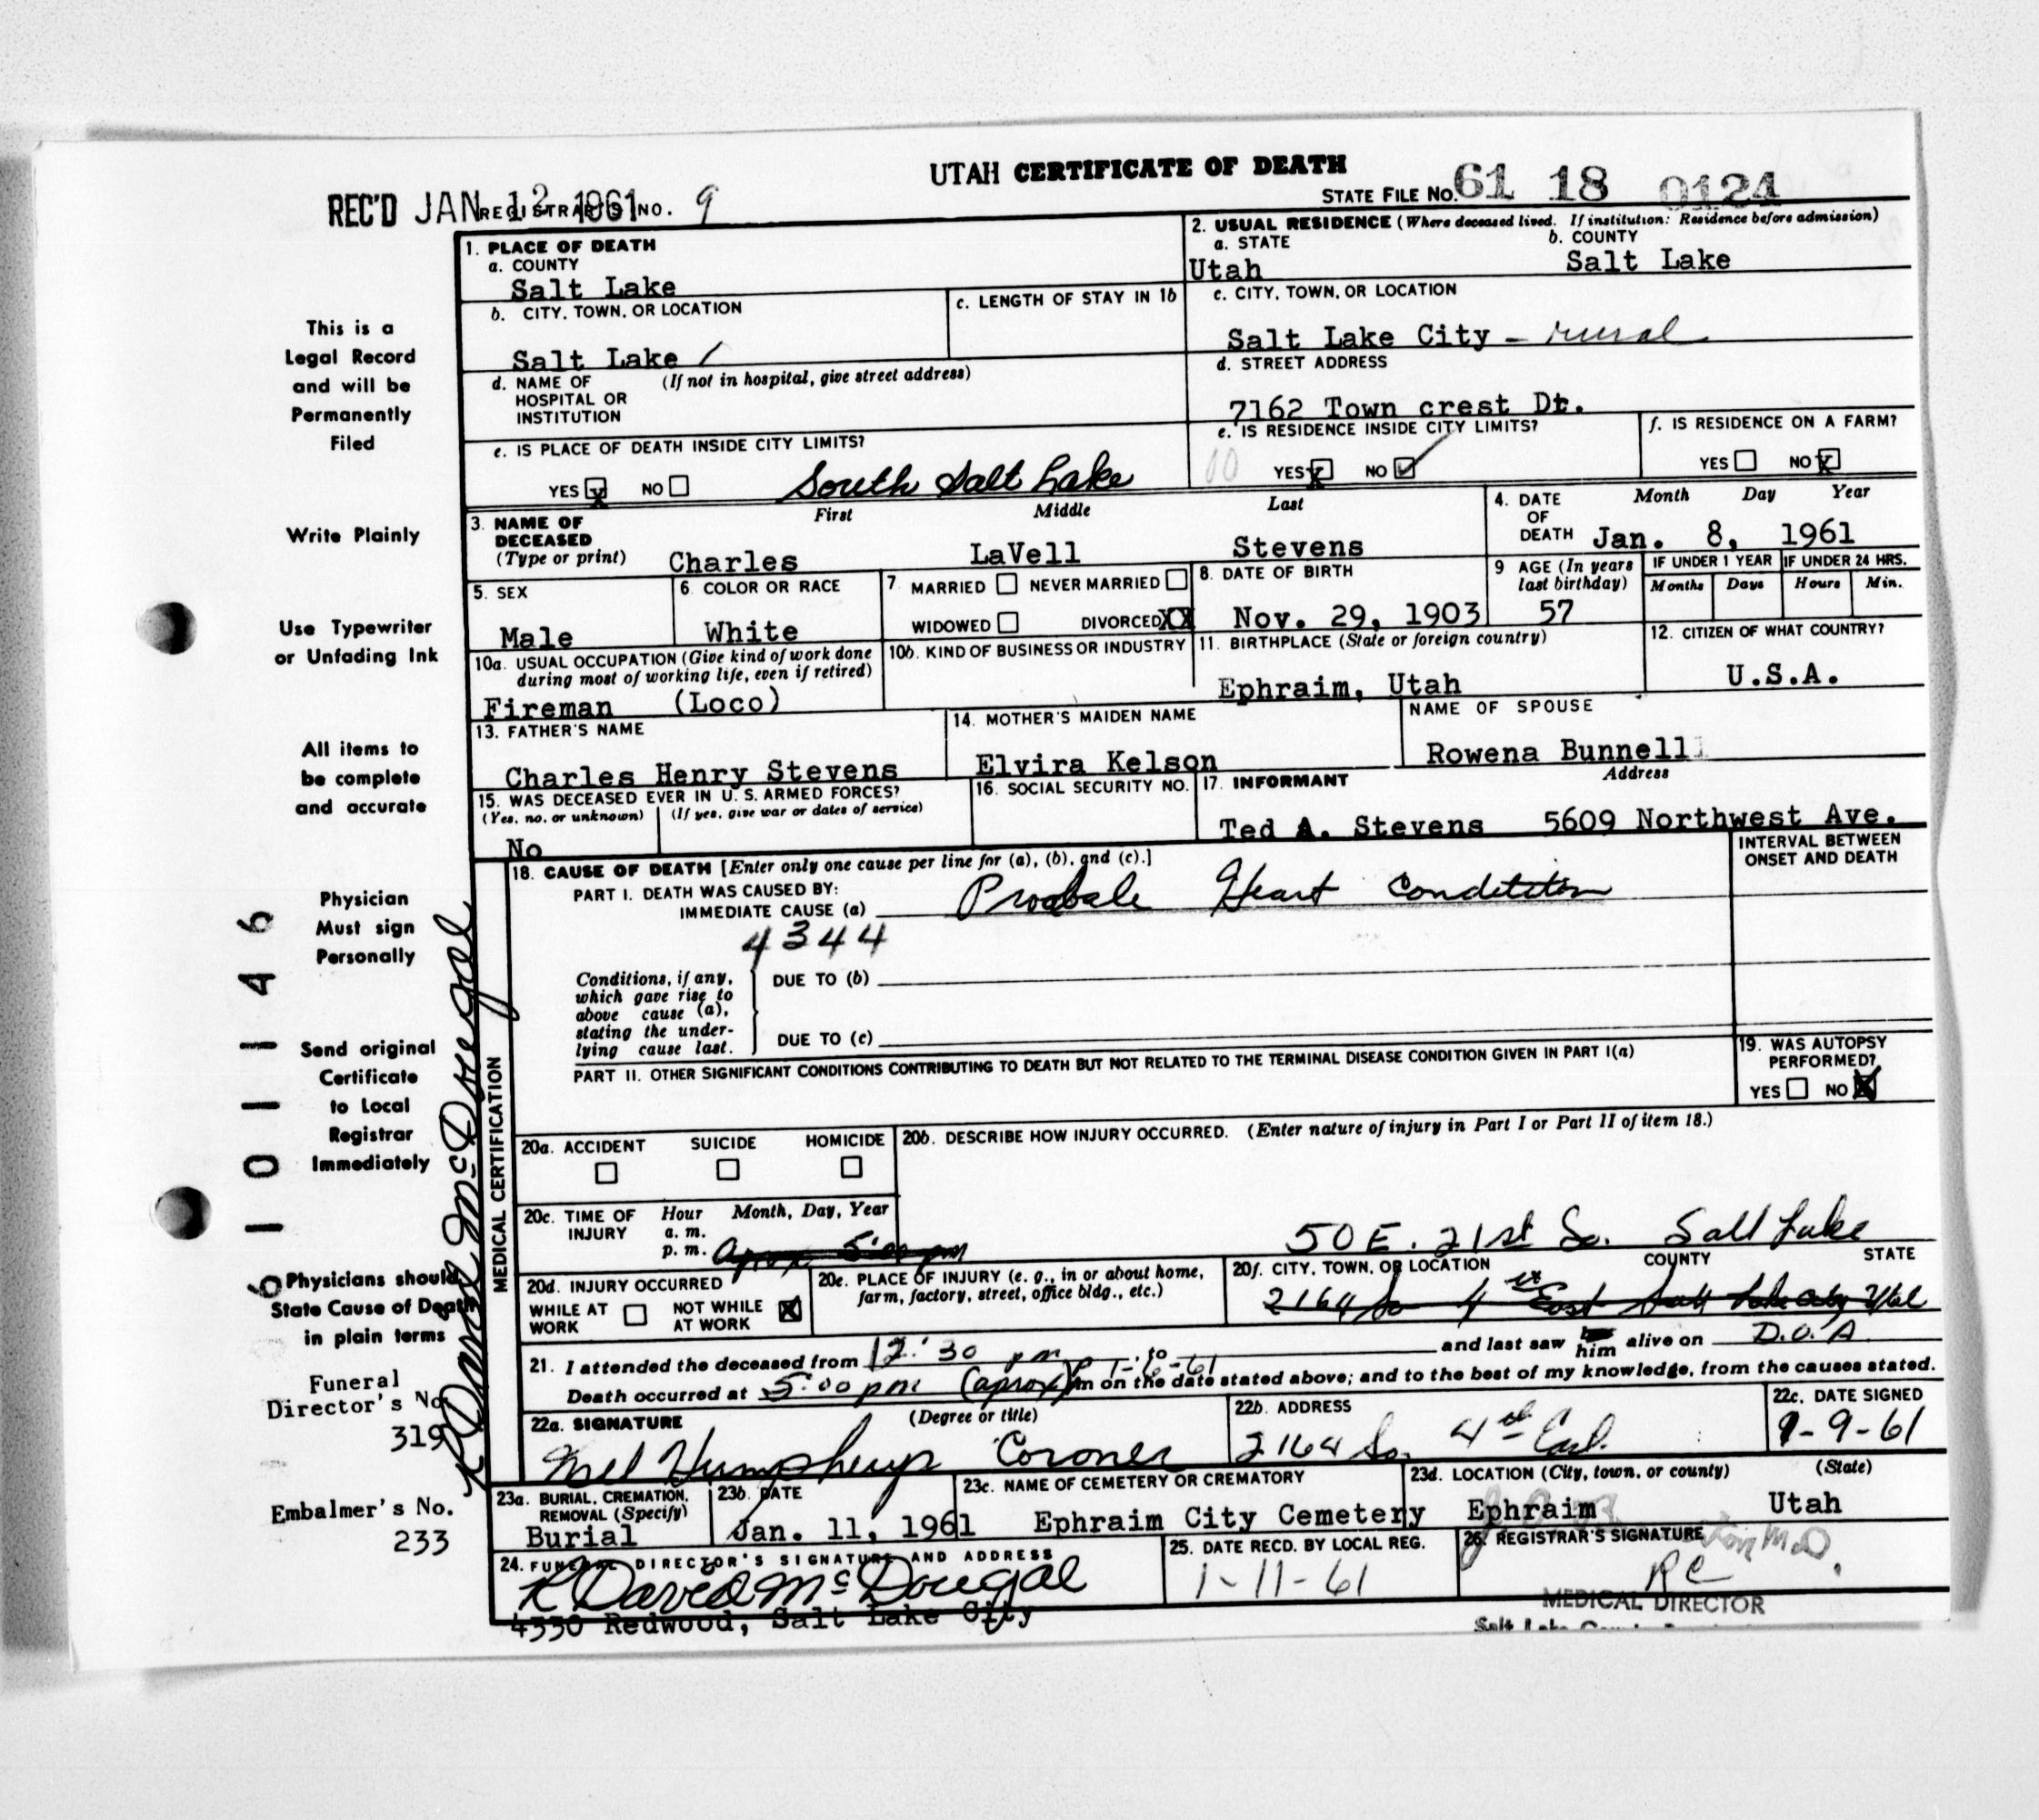 UTAH CERTIFICATE OF DEATH
REC'D JAN 12 1961 REGISTRAR'S NO. 9
STATE FILE NO. 61 18 0124
1. PLACE OF DEATH
a. COUNTY
Salt Lake
2. USUAL RESIDENCE (Where deceased lived. If institution: Residence before admission)
a. STATE
Utah
b. COUNTY
Salt Lake
b. CITY, TOWN, OR LOCATION
Salt Lake /
c. LENGTH OF STAY IN 1b
c. CITY, TOWN, OR LOCATION
Salt Lake City - rural
d. NAME OF HOSPITAL OR INSTITUTION
(If not in hospital, give street address)
d. STREET ADDRESS
7162 Town crest Dr.
e. IS PLACE OF DEATH INSIDE CITY LIMITS?
YES X NO
South Salt Lake
e. IS RESIDENCE INSIDE CITY LIMITS?
YES X NO ✓
f. IS RESIDENCE ON A FARM?
YES NO X
3. NAME OF DECEASED
(Type or print)
First Middle Last
Charles LaVell Stevens
4. DATE OF DEATH
Month Day Year
Jan. 8, 1961
5. SEX
Male
6. COLOR OR RACE
White
7. MARRIED NEVER MARRIED
WIDOWED DIVORCED XX
8. DATE OF BIRTH
Nov. 29, 1903
9 AGE (In years last birthday)
57
IF UNDER 1 YEAR
Months Days
IF UNDER 24 HRS.
Hours Min.
10a. USUAL OCCUPATION (Give kind of work done during most of working life, even if retired)
Fireman (Loco)
10b. KIND OF BUSINESS OR INDUSTRY
11. BIRTHPLACE (State or foreign country)
Ephraim, Utah
12. CITIZEN OF WHAT COUNTRY?
U.S.A.
13. FATHER'S NAME
Charles Henry Stevens
14. MOTHER'S MAIDEN NAME
Elvira Kelson
NAME OF SPOUSE
Rowena Bunnell
15. WAS DECEASED EVER IN U. S. ARMED FORCES?
(Yes, no, or unknown) (If yes, give war or dates of service)
No
16. SOCIAL SECURITY NO.
17. INFORMANT Address
Ted A. Stevens 5609 Northwest Ave.
18. CAUSE OF DEATH [Enter only one cause per line for (a), (b), and (c).]
INTERVAL BETWEEN ONSET AND DEATH
PART I. DEATH WAS CAUSED BY:
IMMEDIATE CAUSE (a) Proabale Heart Condititon
4344
Conditions, if any, which gave rise to above cause (a), stating the underlying cause last.
DUE TO (b)
DUE TO (c)
PART II. OTHER SIGNIFICANT CONDITIONS CONTRIBUTING TO DEATH BUT NOT RELATED TO THE TERMINAL DISEASE CONDITION GIVEN IN PART I(a)
19. WAS AUTOPSY PERFORMED?
YES NO X
20a. ACCIDENT SUICIDE HOMICIDE
20b. DESCRIBE HOW INJURY OCCURRED. (Enter nature of injury in Part I or Part II of item 18.)
20c. TIME OF INJURY
Hour Month, Day, Year
a. m.
p. m. aprox 5:00 pm
50 E. 21st So. Salt Lake
20d. INJURY OCCURRED
WHILE AT WORK NOT WHILE AT WORK X
20e. PLACE OF INJURY (e. g., in or about home, farm, factory, street, office bldg., etc.)
20f. CITY, TOWN, OR LOCATION COUNTY STATE
2164 So 4th East Salt Lake City Utah
21. I attended the deceased from 12:30 pm to 1-8-61 and last saw her him alive on D.O.A
Death occurred at 5:00 pm (aprox) m on the date stated above; and to the best of my knowledge, from the causes stated.
22a. SIGNATURE (Degree or title)
Mel Humpherys Coroner
22b. ADDRESS
2164 So. 4th East.
22c. DATE SIGNED
1-9-61
23a. BURIAL, CREMATION, REMOVAL (Specify)
Burial
23b. DATE
Jan. 11, 1961
23c. NAME OF CEMETERY OR CREMATORY
Ephraim City Cemetery
23d. LOCATION (City, town, or county) (State)
Ephraim Utah
24. FUNERAL DIRECTOR'S SIGNATURE AND ADDRESS
R David McDougal
4330 Redwood, Salt Lake City
25. DATE RECD. BY LOCAL REG.
1-11-61
26. REGISTRAR'S SIGNATURE
M.D.
RC
MEDICAL DIRECTOR
MEDICAL CERTIFICATION
R David McDougal
This is a
Legal Record
and will be
Permanently
Filed
Write Plainly
Use Typewriter
or Unfading Ink
All items to
be complete
and accurate
Physician
Must sign
Personally
Send original
Certificate
to Local
Registrar
Immediately
Physicians should
State Cause of Death
in plain terms
Funeral
Director's No
319
Embalmer's No.
233